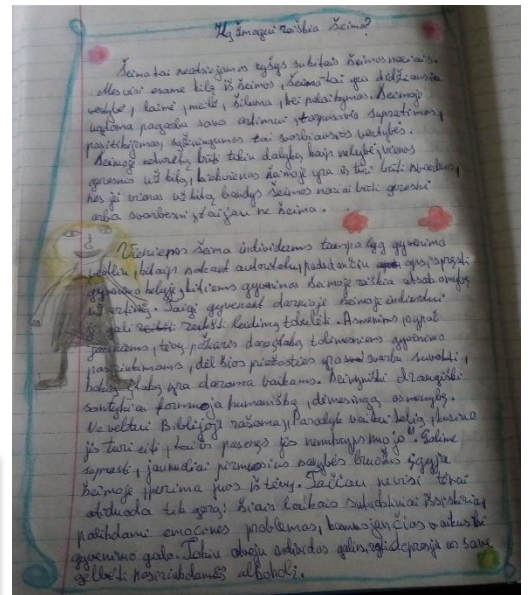 Ką žmogui reiškia šeima?
Šeima tai neatsiejamas ryšys su kitais šeimos nariais.
Mes visi esame kilę iš šeimos, šeima tai yra didžiausia
vertybė, laimė, meilė, šiluma, bei palaikymas. Šeimoje
ugdoma pagarba savo artimui, tarpusavio supratimas,
pasitikėjimas, sąžiningumas tai svarbiausios vertybės.
Šeimoje neturėtų būti tokių dalykų kaip nelygybė, vienas
geresnis už kitą, kiekvienas šeimoje yra ir turi būti svarbus,
nes jei vienas už kitą bandys šeimos nariai būti geresni
arba svarbesni, tai jau ne šeima.
Vieniems šeima individams tampa lyg gyvenimo
vedliu, kitaip sakant autoritetu, padedančiu apsispręsti
gyvenimo kelyje, kitiems gyvenimas šeimoje reiškia atsakomybę
už ateitį. Taigi gyvenant darnioje šeimoje individui
gali reikšti leidimą tobulėt. Asmenims, ypač
jauniems, tėvų požiūris daro įtaką tolimesniems gyvenimo
pasirinkimams, dėl šios priežasties yra svarbu suvokti,
kokia įtaka yra daroma vaikams. Šeimyniški draugiški
santykiai formuoja humanišką, dėmesingą asmenybę.
Ne veltui Biblijoje rašoma: "Parodyk vaikui kelią, kuriuo
jis turi eiti, tai ir pasenęs jis nenukryps nuo jo". Galime
suprasti, jaunuoliai pirmuosius savybės bruožus įgyja
šeimoje, perima juos iš tėvų. Tačiau ne visi tėvai
atiduoda tik gerą: šiais laikais sutuoktiniai išsiskiria,
palikdami emocines problemas, kamuojančias vaikus iki
gyvenimo galo. Tokiu atveju individas gali depresija ar save
gelbėti pasinaudodamas alkoholį.